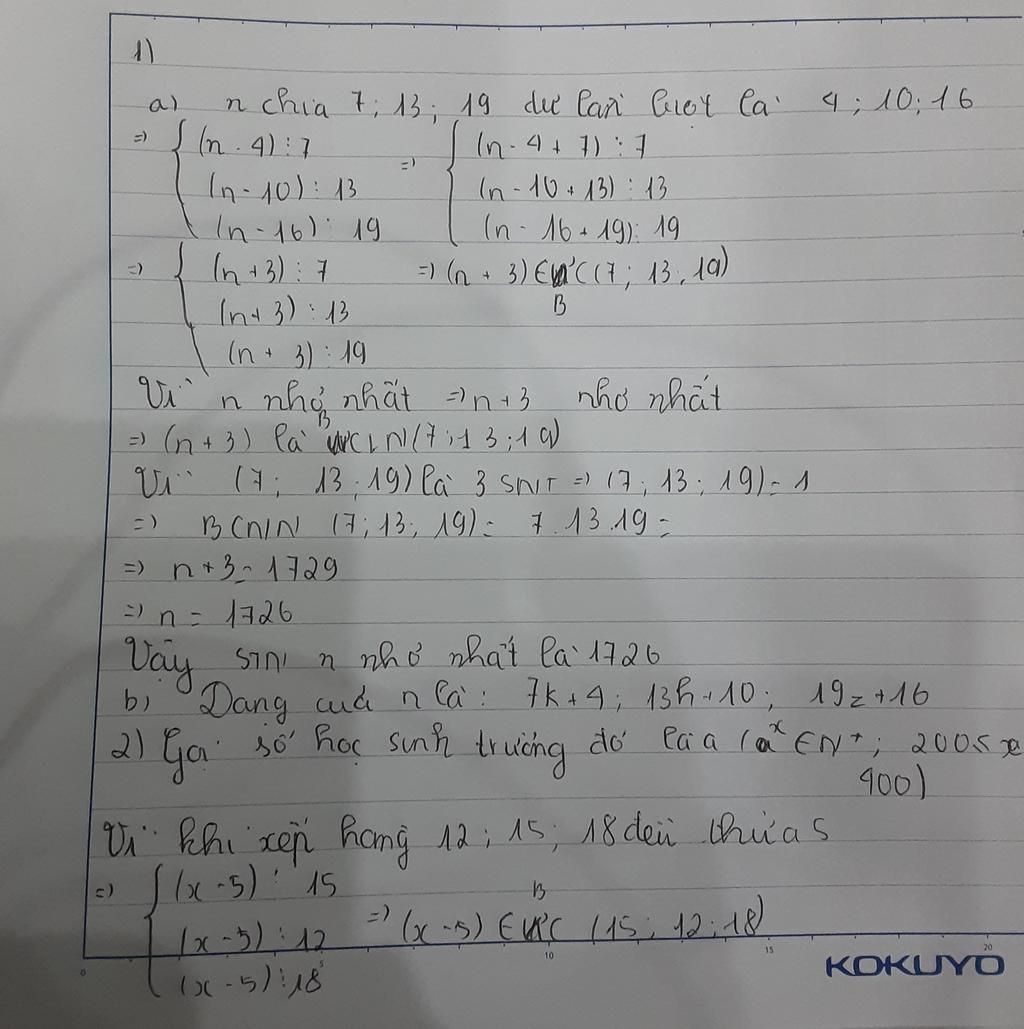 1)
a) n chia 7; 13; 19 dư lần lượt là 4; 10; 16
=> { (n - 4) ⋮ 7 => { (n - 4 + 7) ⋮ 7
(n - 10) ⋮ 13 (n - 10 + 13) ⋮ 13
(n - 16) ⋮ 19 (n - 16 + 19) ⋮ 19
=> { (n + 3) ⋮ 7 => (n + 3) ∈ BC (7; 13; 19)
(n + 3) ⋮ 13
(n + 3) ⋮ 19
Vì n nhỏ nhất => n + 3 nhỏ nhất
=> (n + 3) là BCLN (7; 13; 19)
Vì (7; 13; 19) là 3 SNT => (7; 13; 19) = 1
=> BCNN (7; 13; 19) = 7 . 13 . 19 =
=> n + 3 = 1729
=> n = 1726
Vậy STN n nhỏ nhất là 1726
b) Dạng của n là: 7k + 4; 13h + 10; 19z + 16
2) Gọi số học sinh trường đó là a (x ∈ N*; 200 ≤ x
900)
Vì khi xếp hàng 12; 15; 18 đều thừa 5
=> { (x - 5) ⋮ 15
(x - 5) ⋮ 12 => (x - 5) ∈ BC (15; 12; 18)
(x - 5) ⋮ 18
0 5 10 15 20
KOKUYO